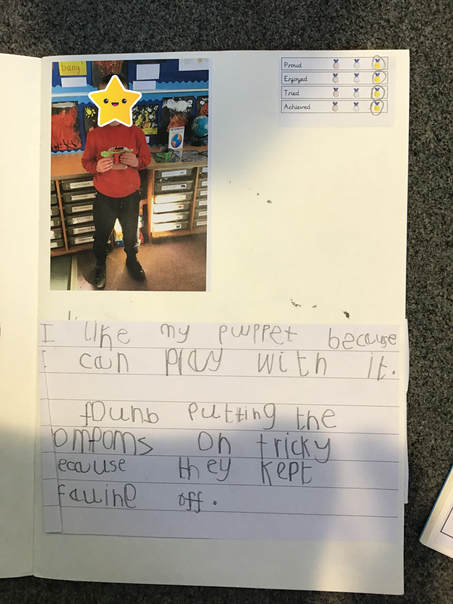 bang!
Proud
Enjoyed
Tried
Achieved
I like my puppet because
I can play with it.
founb putting the
ompoms on tricky
ecause they kept
off.